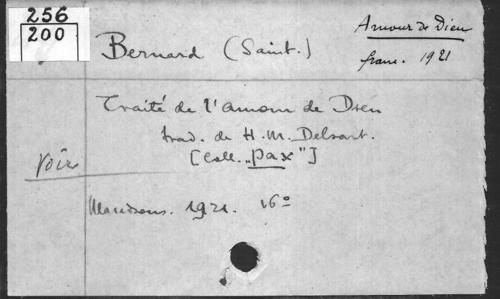 256
200
Amour de Dieu
franc. 1921
Bernard (Saint.)
Traité de l'amour de Dieu
trad. de H. M. Delsart.
[Coll. „Pax"]
Voir
Maredsous. 1921. 16°